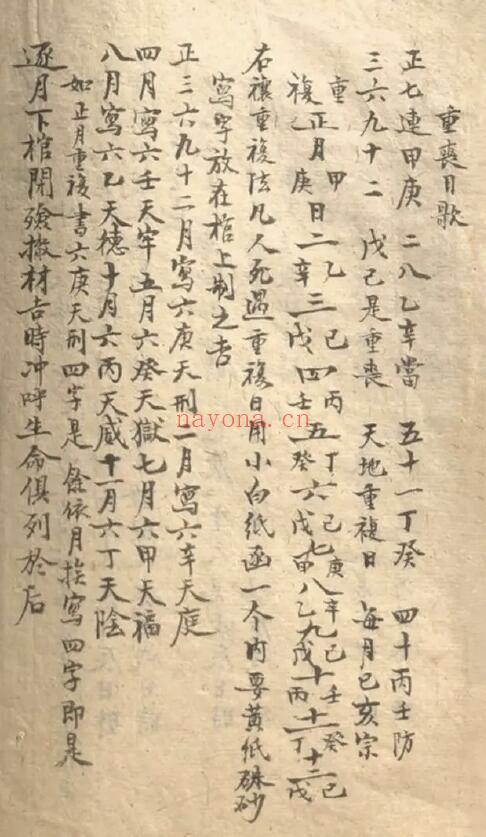 重喪日歌
正七連甲庚 二八乙辛當 五十一丁癸 四十丙壬防
三六九十二 戊己是重喪 天地重複日 每月巳亥宗
重 甲 乙 己 丙 丁 己 庚 辛 己 壬 癸 己
複 正月庚日二辛三戊四壬五癸六戊七甲八乙九戊十丙十一丁十二戊
右禳重複法凡人死遇重複日用小白紙函一个內要黃紙硃砂
寫字放在棺上制之吉
正三六九十二月寫六庚天刑二月寫六辛天庭
四月寫六壬天牢五月六癸天獄七月六甲天福
八月寫六乙天德十月六丙天威十一月六丁天陰
如正月重複書六庚天刑四字是 餘依月挨寫四字即是
逐月下棺閉殮撤材吉時冲呼生命俱列於后
nayona.cn